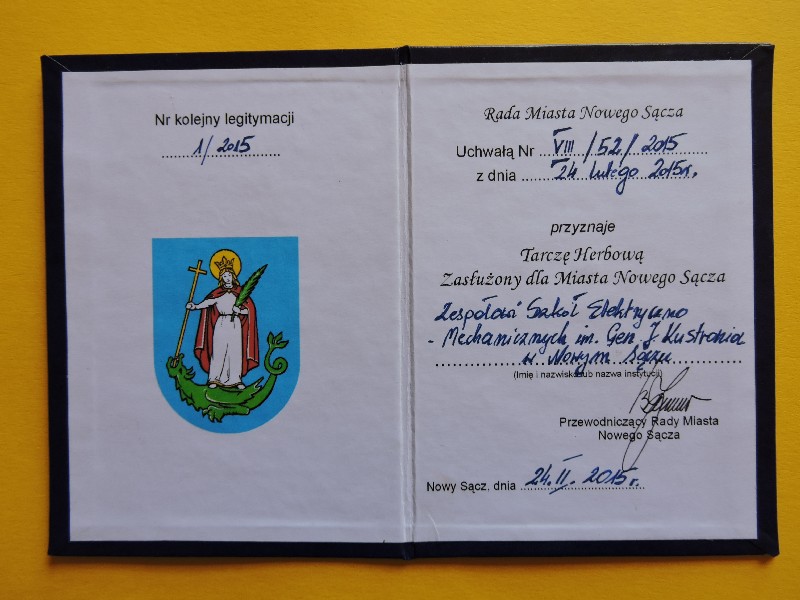 Nr kolejny legitymacji
1/2015
Rada Miasta Nowego Sącza
Uchwałą Nr VIII/52/2015
z dnia 24 lutego 2015r.
przyznaje
Tarczę Herbową
Zasłużony dla Miasta Nowego Sącza
Zespołowi Szkół Elektryczno
- Mechanicznych im. Gen. J. Kustronia
w Nowym Sączu
(Imię i nazwisko lub nazwa instytucji)
Przewodniczący Rady Miasta
Nowego Sącza
Nowy Sącz, dnia 24.II.2015r.